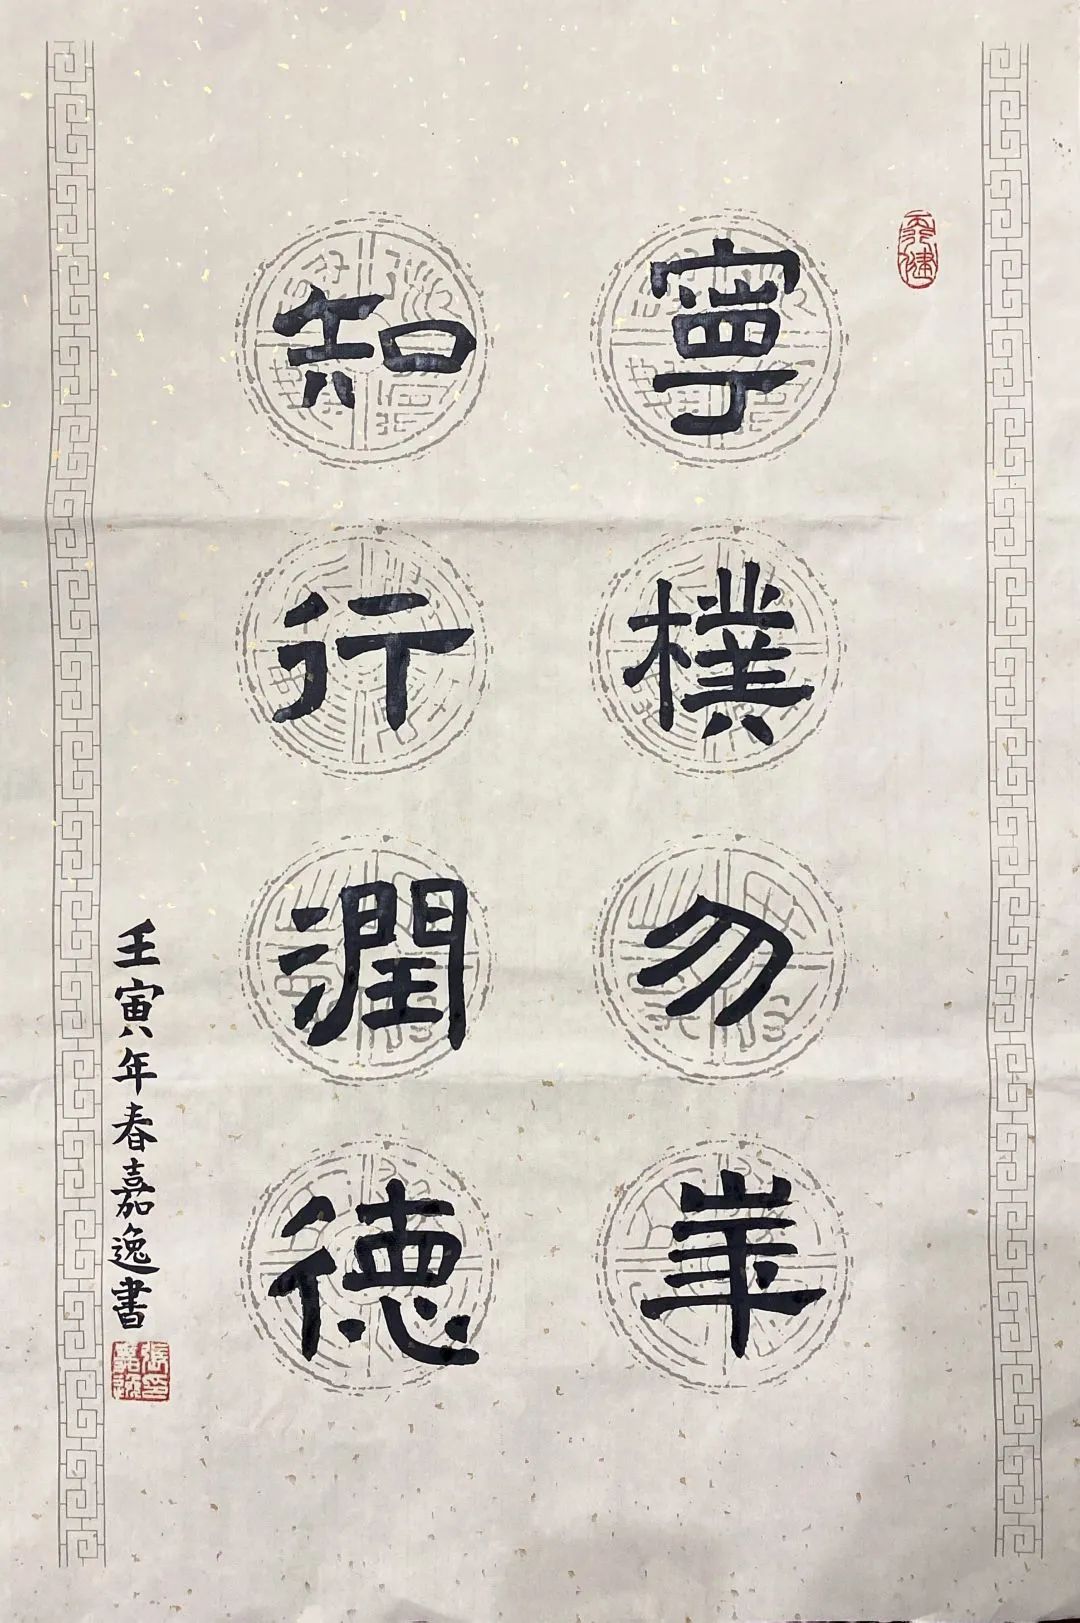 天行健
寧樸勿華
知行潤德
壬寅年春嘉逸書
張印
嘉逸